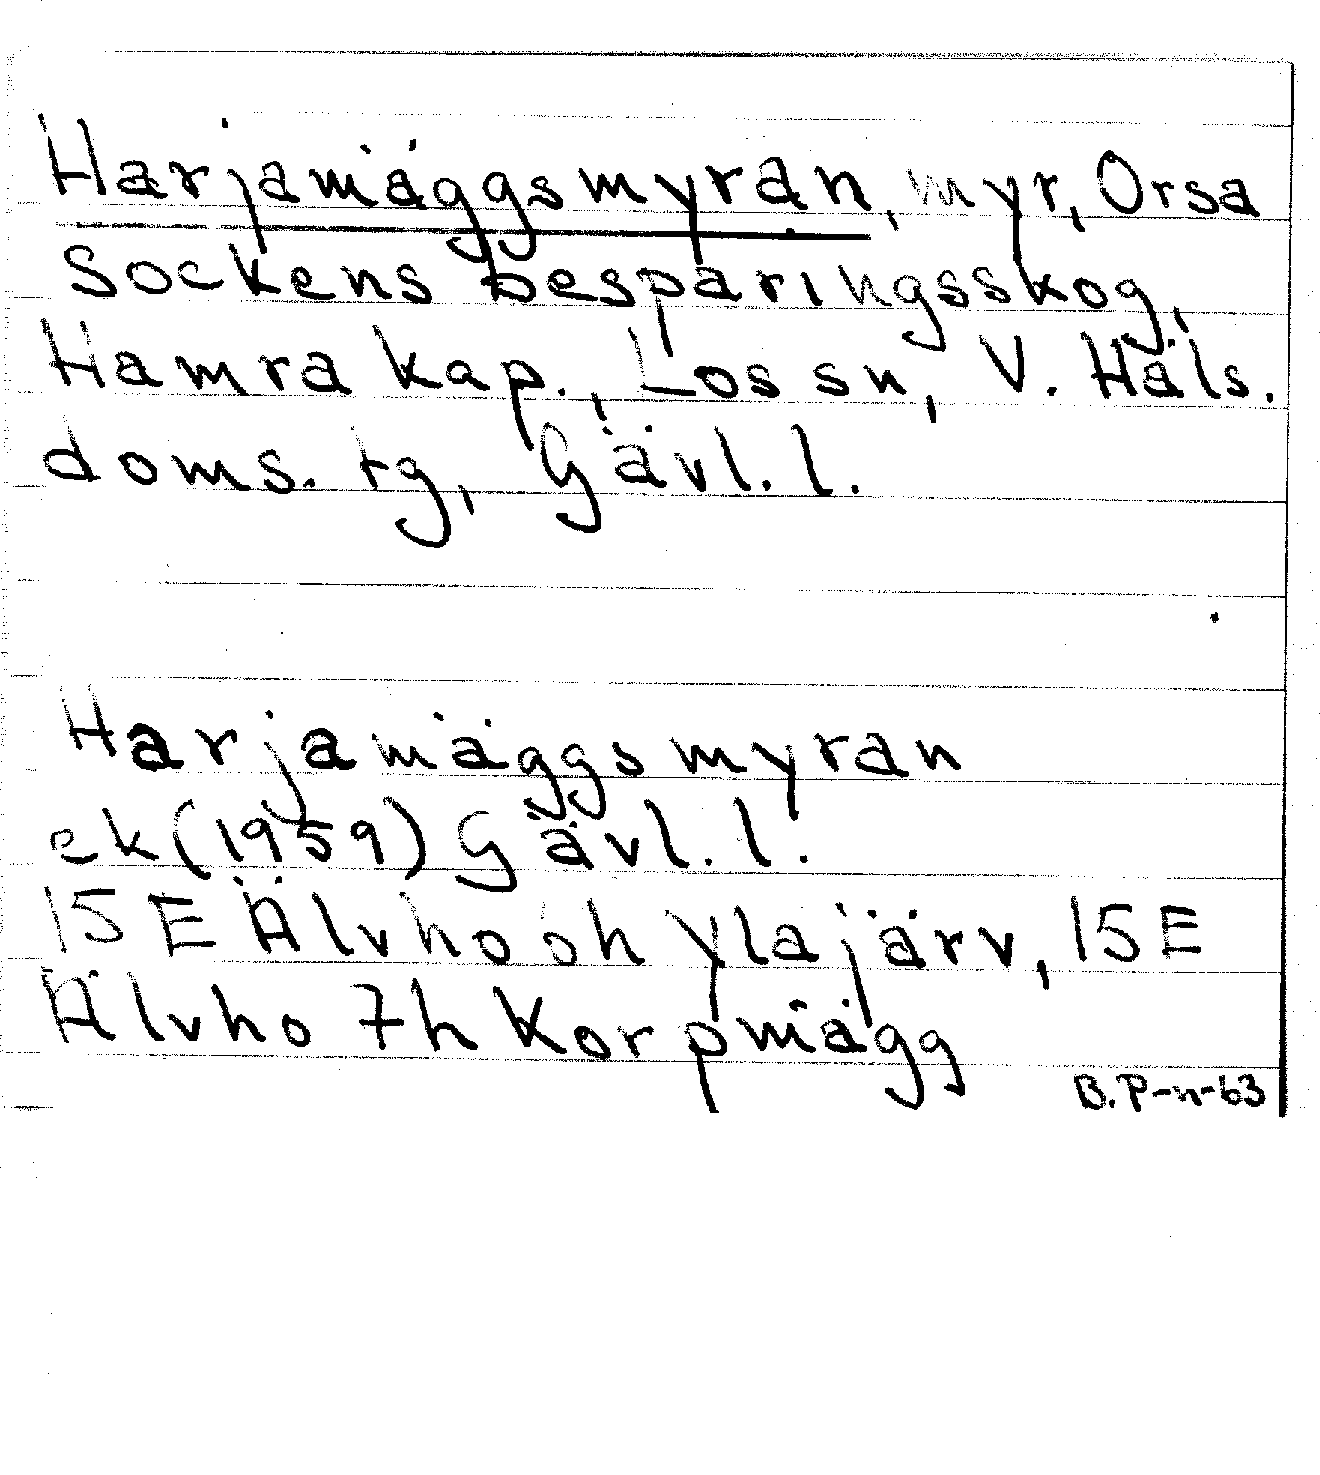 Harjamäggsmyran, myr, Orsa
Sockens besparingsskog,
Hamra kap., Los sn, V. Häls.
doms. tg, Gävl. l.
Harjamäggsmyran
ek (1959) Gävl. l.
15 E Älvho öh Ylajärv, 15 E
Älvho 7h Korpmägg
B.P-n-63